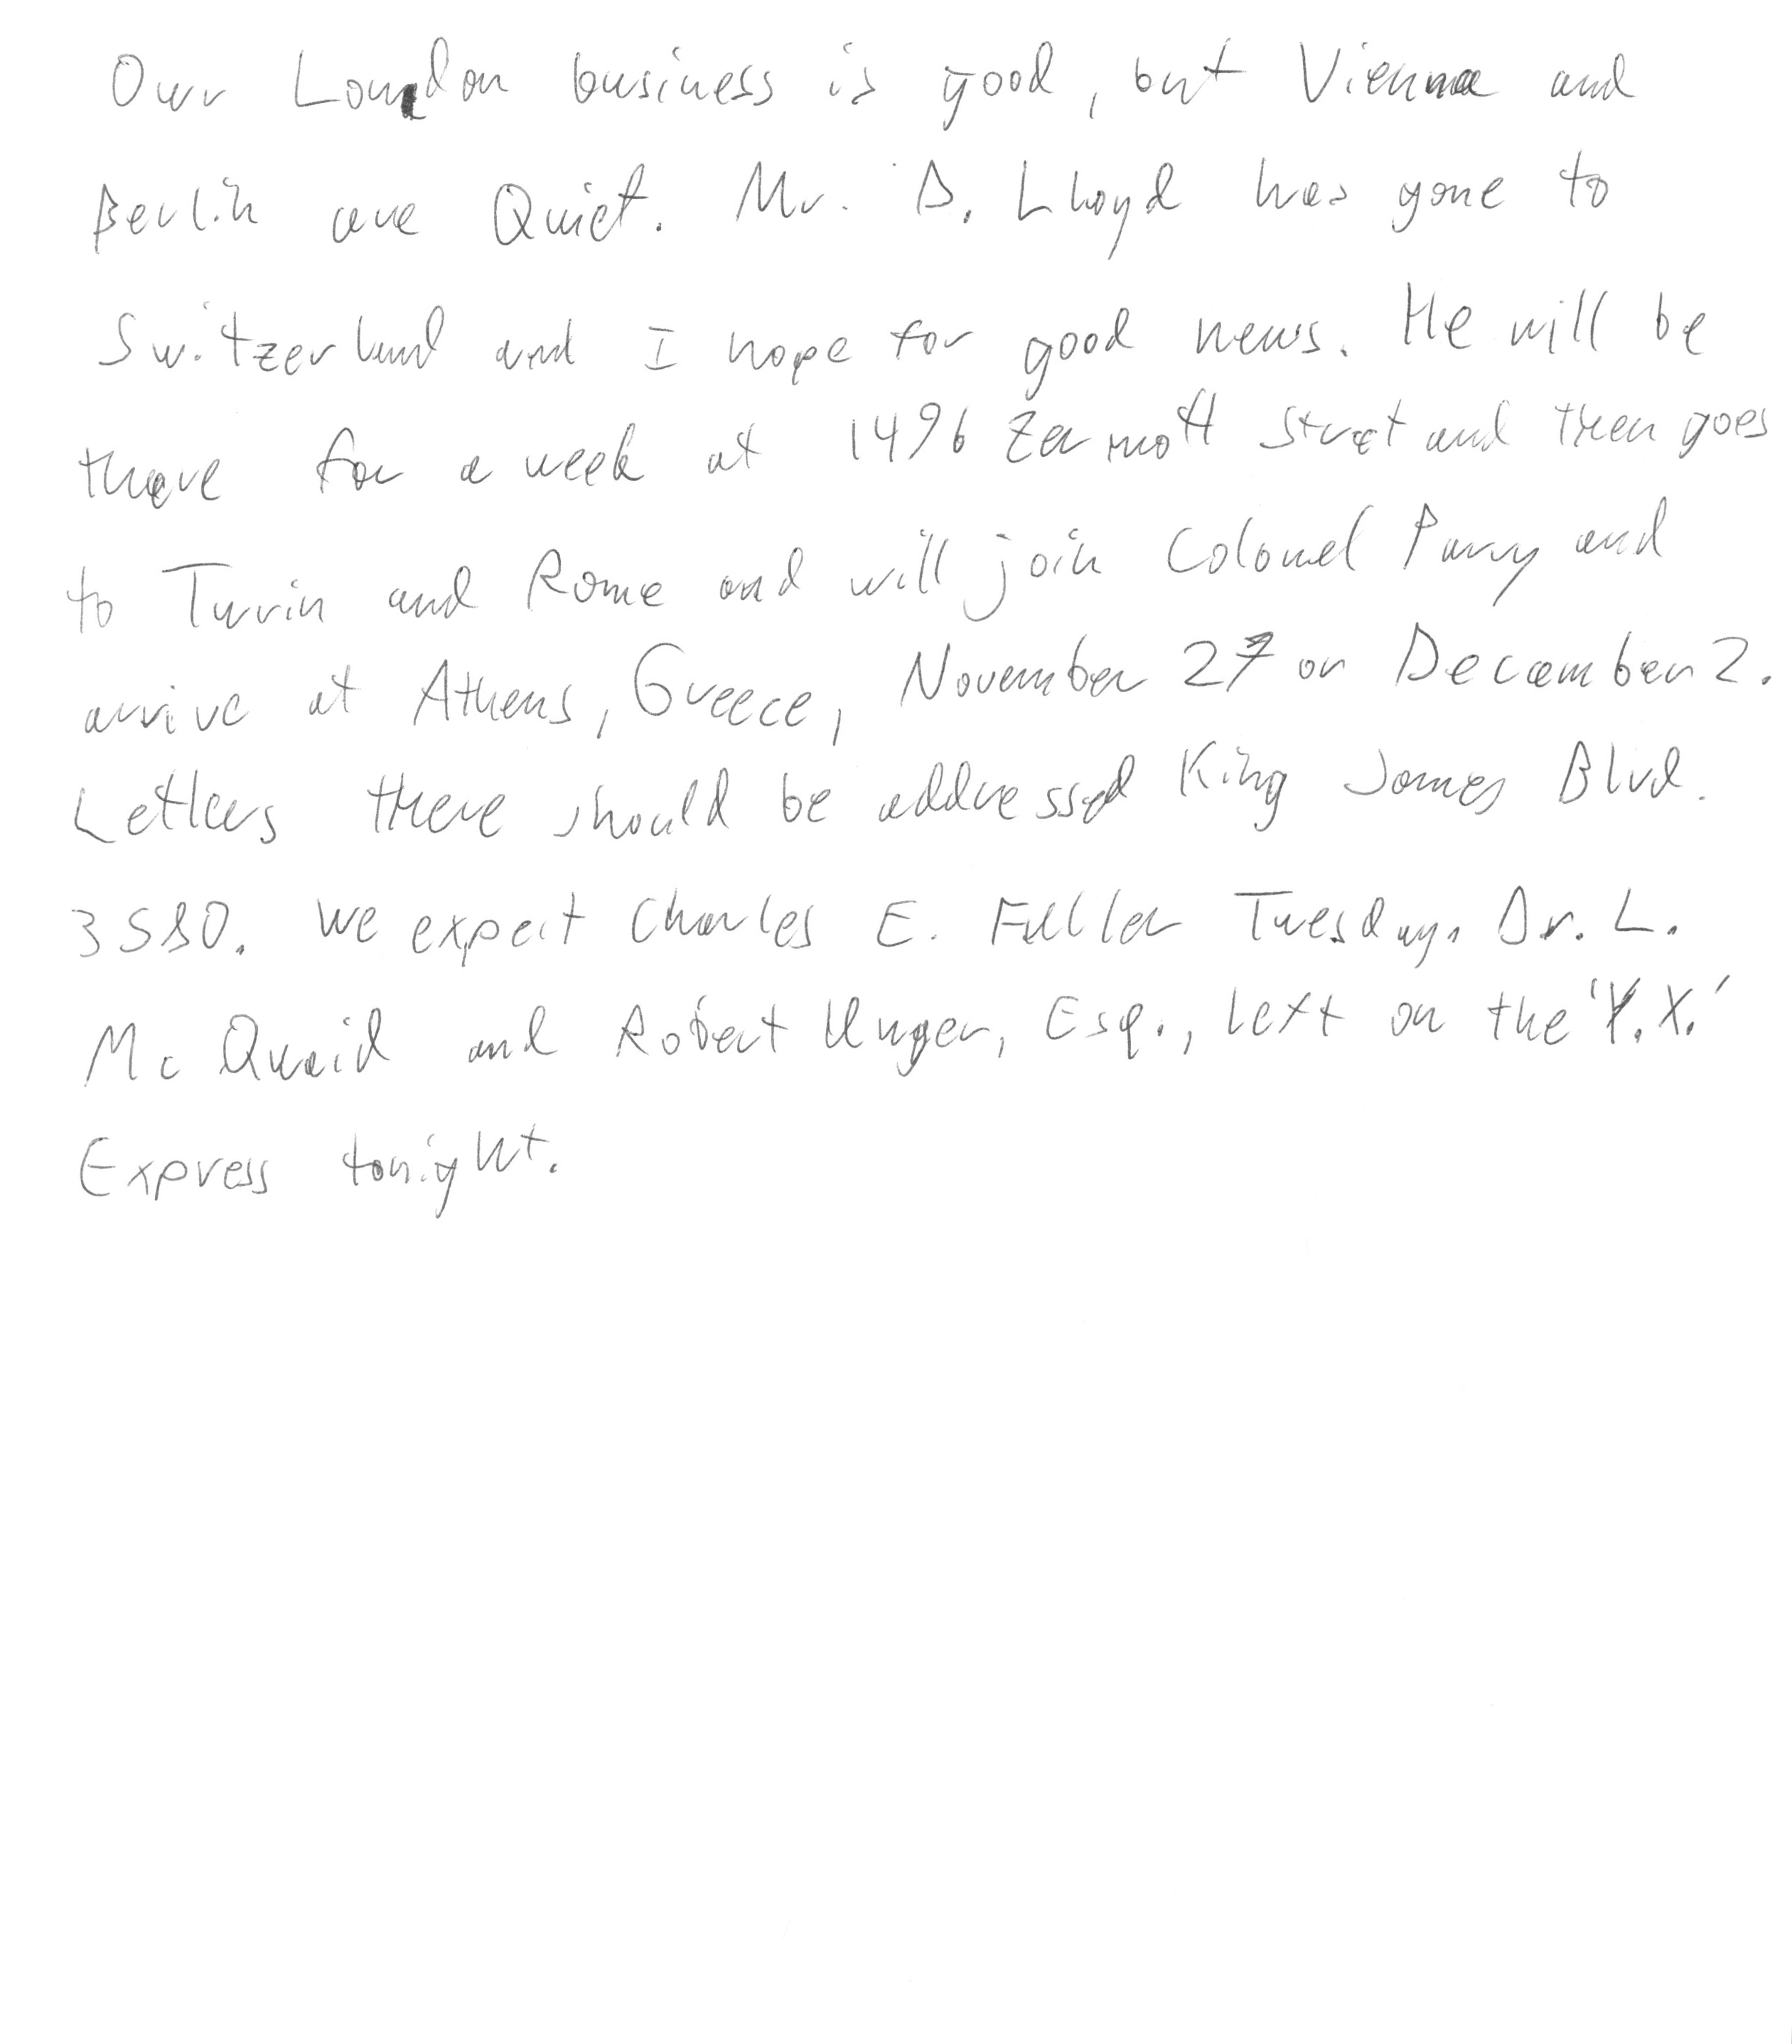 Our London business is good, but Vienna and
Berlin are Quiet. Mr. D. Lloyd has gone to
Switzerland and I hope for good news. He will be
there for a week at 1496 Zermott Street and then goes
to Turin and Rome and will join Colonel Parry and
arrive at Athens, Greece, November 27 or December 2.
Letters there should be addressed King James Blvd.
3580. We expect Charles E. Fuller Tuesday. Dr. L.
Mc Quaid and Robert Unger, Esq., left on the 'Y.X.'
Express tonight.